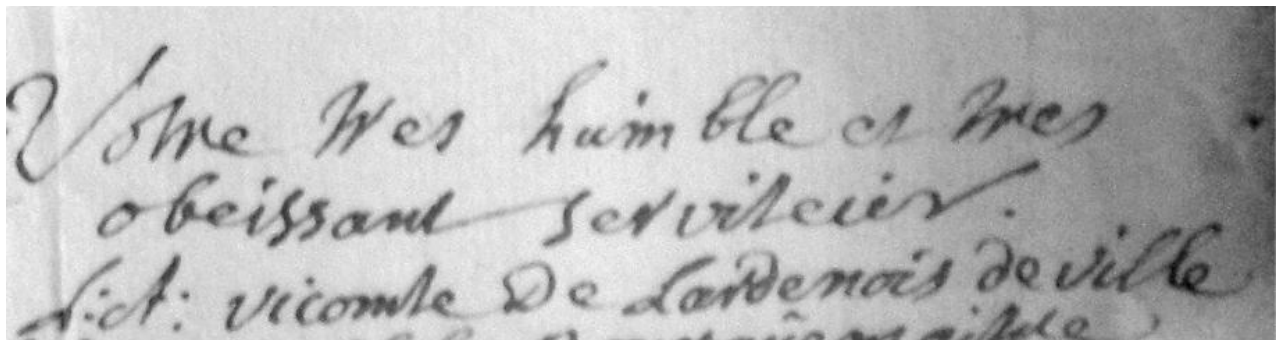 Votre tres humble et tres
obeissant serviteur.
vicomte De Lardenois de ville